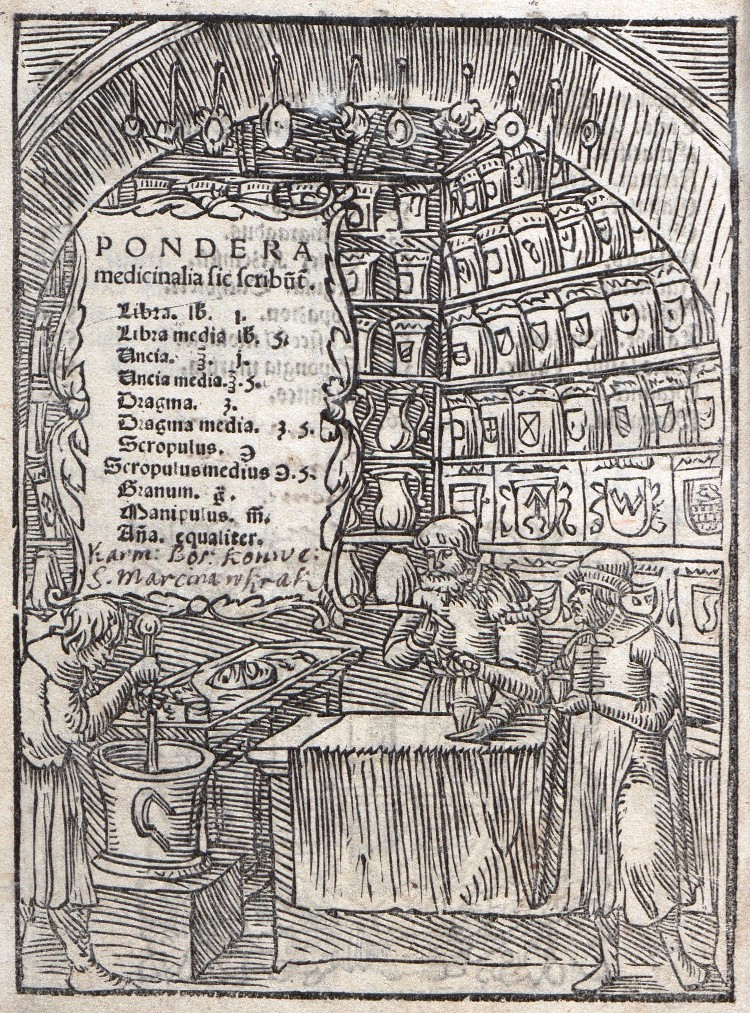 PONDERA
medicinalia sic scribūt̄.
Libra. lb. j.
Libra media lb. s.
Uncia. ℥. j.
Uncia media. ℥. s.
Dragma. ʒ.
Dragma media. ʒ. s.
Scropulus. ℈
Scropulus medius ℈. s.
Granum. g̃.
Manipulus. m̃.
Aña. equaliter.
Karm: Bos: Konwe:
S. Marcina w Krak
W